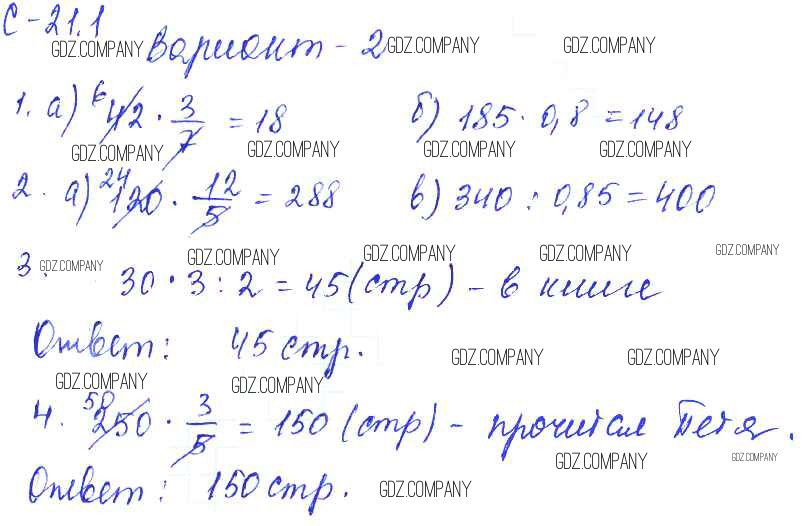 С-21.1
GDZ.COMPANY Вариант-2 GDZ.COMPANY GDZ.COMPANY
1. а) 6 42 · 3/7 = 18 б) 185 · 0,8 = 148
GDZ.COMPANY GDZ.COMPANY GDZ.COMPANY GDZ.COMPANY
2. а) 24 120 · 12/5 = 288 в) 340 : 0,85 = 400
3. GDZ.COMPANY GDZ.COMPANY GDZ.COMPANY GDZ.COMPANY GDZ.COMPANY
30 · 3 : 2 = 45 (стр) - в книге
Ответ: 45 стр.
GDZ.COMPANY GDZ.COMPANY
GDZ.COMPANY GDZ.COMPANY
4. 50 250 · 3/5 = 150 (стр) - прочитал Петя.
GDZ.COMPANY GDZ.COMPANY
Ответ: 150 стр. GDZ.COMPANY